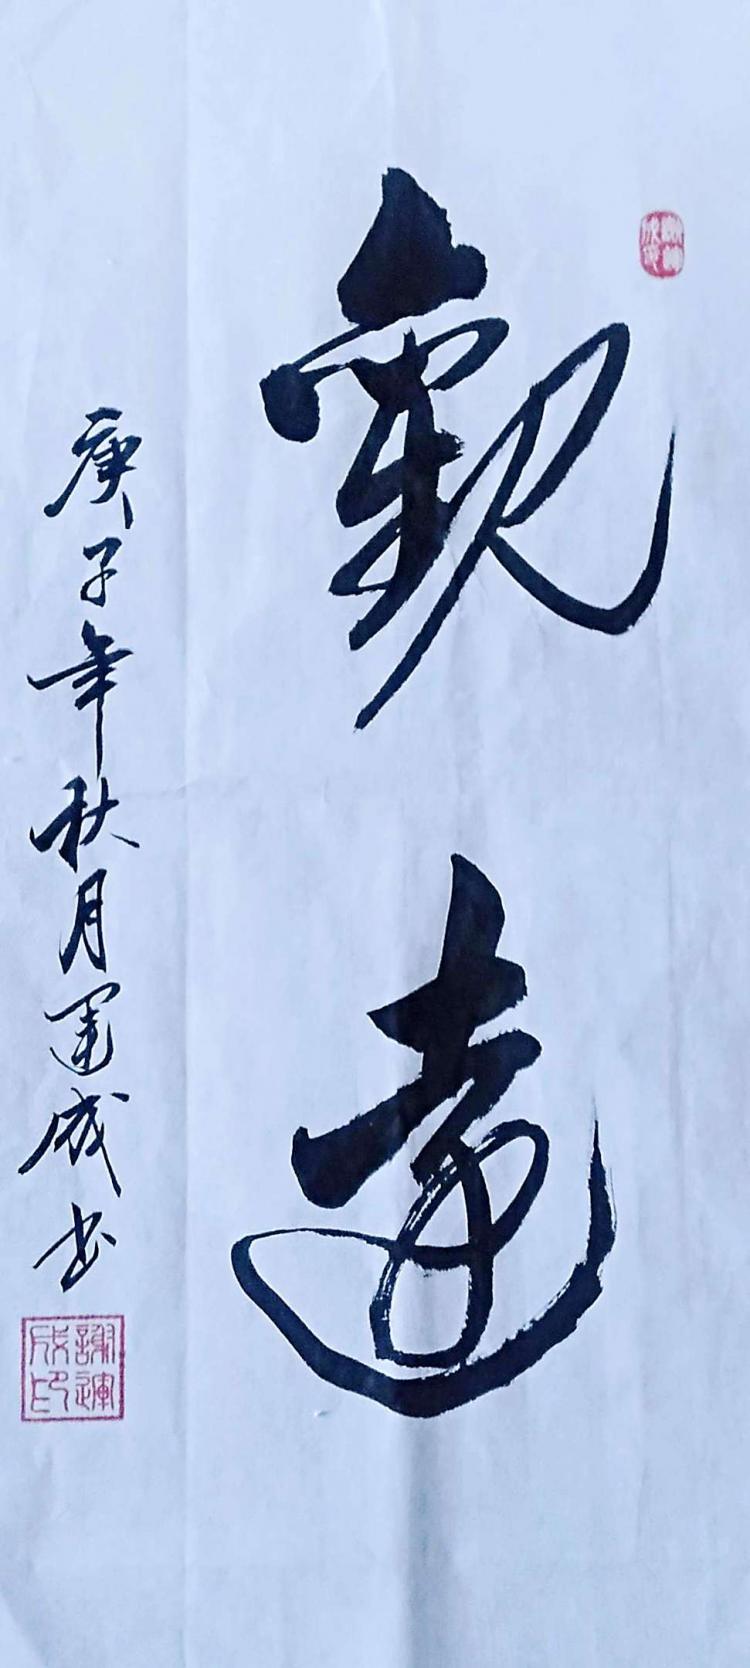 觀
庚子年秋月運成书
謝運成印